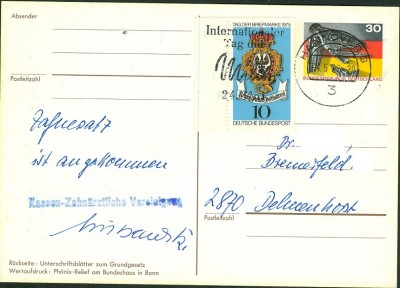 Absender
Postleitzahl
Internationaler
Tag der
TAG DER BRIEFMARKE 1975
10
DEUTSCHE BUNDESPOST
30
3
Zahnersatz
ist angekommen
Kassen-Zahnärztliche Vereinigung
Dr.
Bremerfeld
2870 Delmenhorst
Postleitzahl
Rückseite: Unterschriftsblätter zum Grundgesetz
Wertaufdruck: Phönix-Relief am Bundeshaus in Bonn